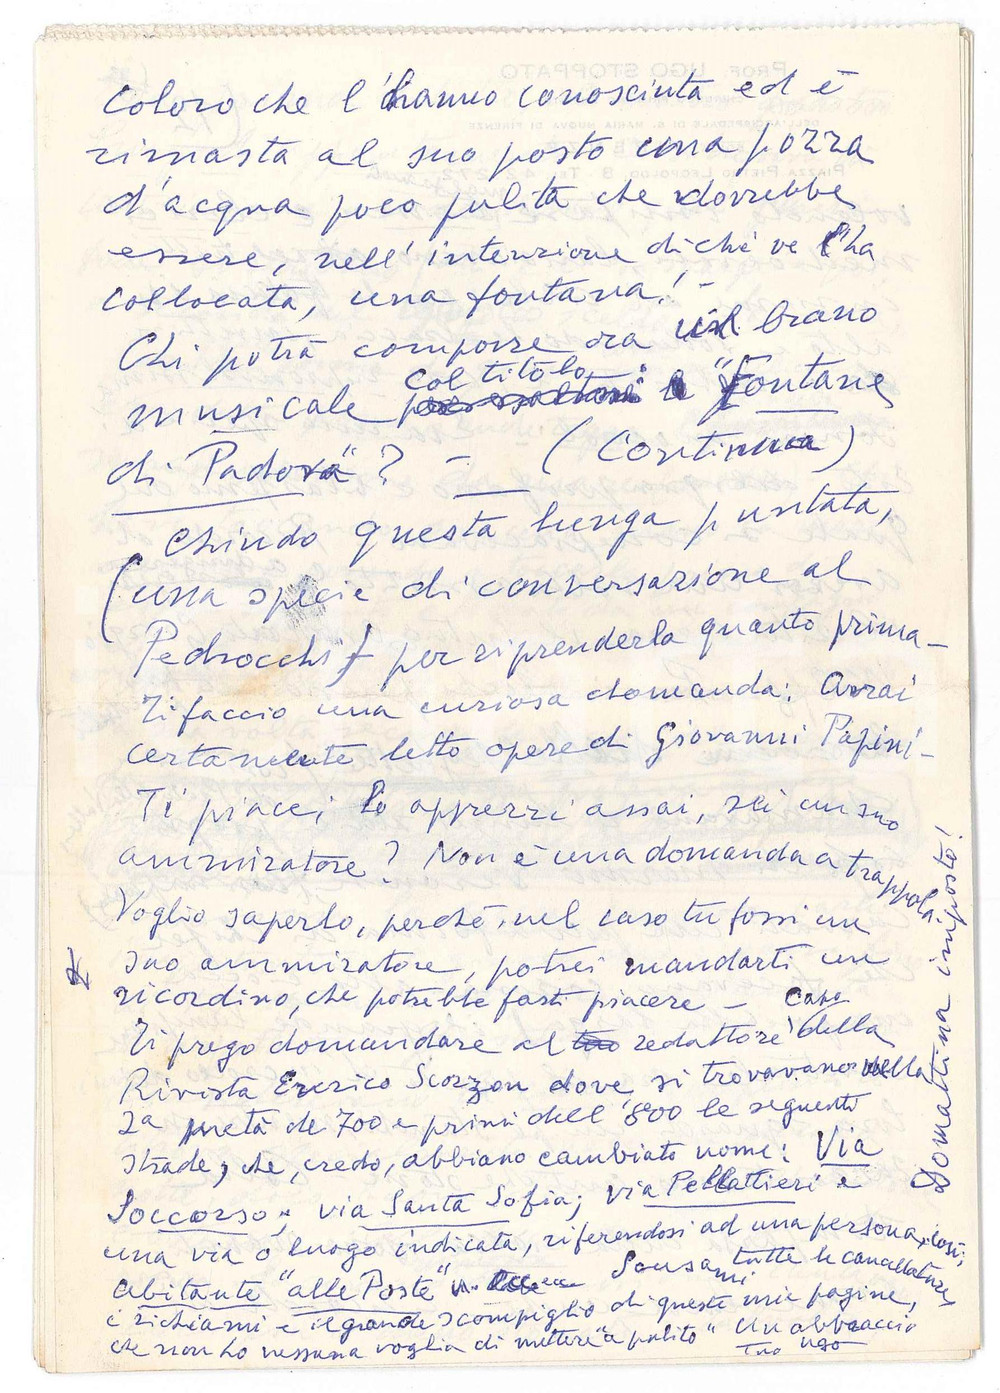 coloro che l'hanno conosciuta ed è
rimasta al suo posto una pozza
d'acqua poco pulita che dovrebbe
essere, nell'intenzione di chi ve l'ha
collocata, una fontana! -
Chi potrà comporre ora un brano
musicale col titolo: "Fontane
di Padova"? - (Continua)
Chiudo questa lunga puntata,
(una specie di conversazione al
Pedrocchi) per riprenderla quanto prima -
Ti faccio una curiosa domanda: Avrai
certamente letto opere di Giovanni Papini -
Ti piace, lo apprezzi assai, sei un suo
ammiratore? Non è una domanda a trappola.
Voglio saperlo, perché, nel caso tu fossi un
suo ammiratore, potrei mandarti un
ricordino, che potrebbe farti piacere -
Ti prego domandare al redattore capo della
Rivista Enrico Scorzon dove si trovavano nella
2a metà del 700 e primi dell'800 le seguenti
strade, che, credo, abbiano cambiato nome: Via
Soccorso; via Santa Sofia; via Pellattieri e
una via o luogo indicata, riferendosi ad una persona, così:
abitante "alle Poste"
Scusami tutte le cancellature
e richiami e il grande scompiglio di queste mie pagine,
che non ho nessuna voglia di mettere "a pulito" Un abbraccio
Tuo Ugo
Domattina imposto!
PROF. UGO STOPPATO
DELL'ARCISPEDALE DI S. MARIA NUOVA DI FIRENZE